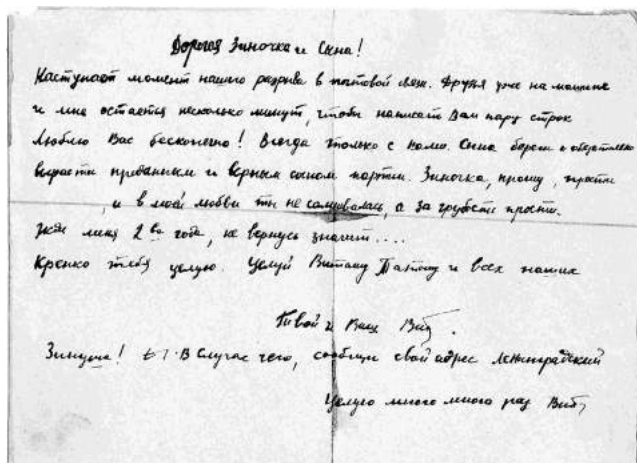 Дорогая Зиночка и Сына!
Наступает момент нашего разрыва в почтовой связи. Друзья уже на машине
и мне остается несколько минут, чтобы написать Вам пару строк
Люблю Вас бесконечно! Всегда только с Вами. Сына береги и обязательно
вырасти преданным и верным сыном партии. Зиночка, прошу, прости
, и в моей любви ты не сомневалась, а за грубости прости.
Жди меня 2 года, не вернусь значит....
Крепко тебя целую. Целуй и всех наших
Твой и Ваш Витя.
Зинуша! В случае чего, сообщи свой адрес Ленинградский
Целую много много раз Витя